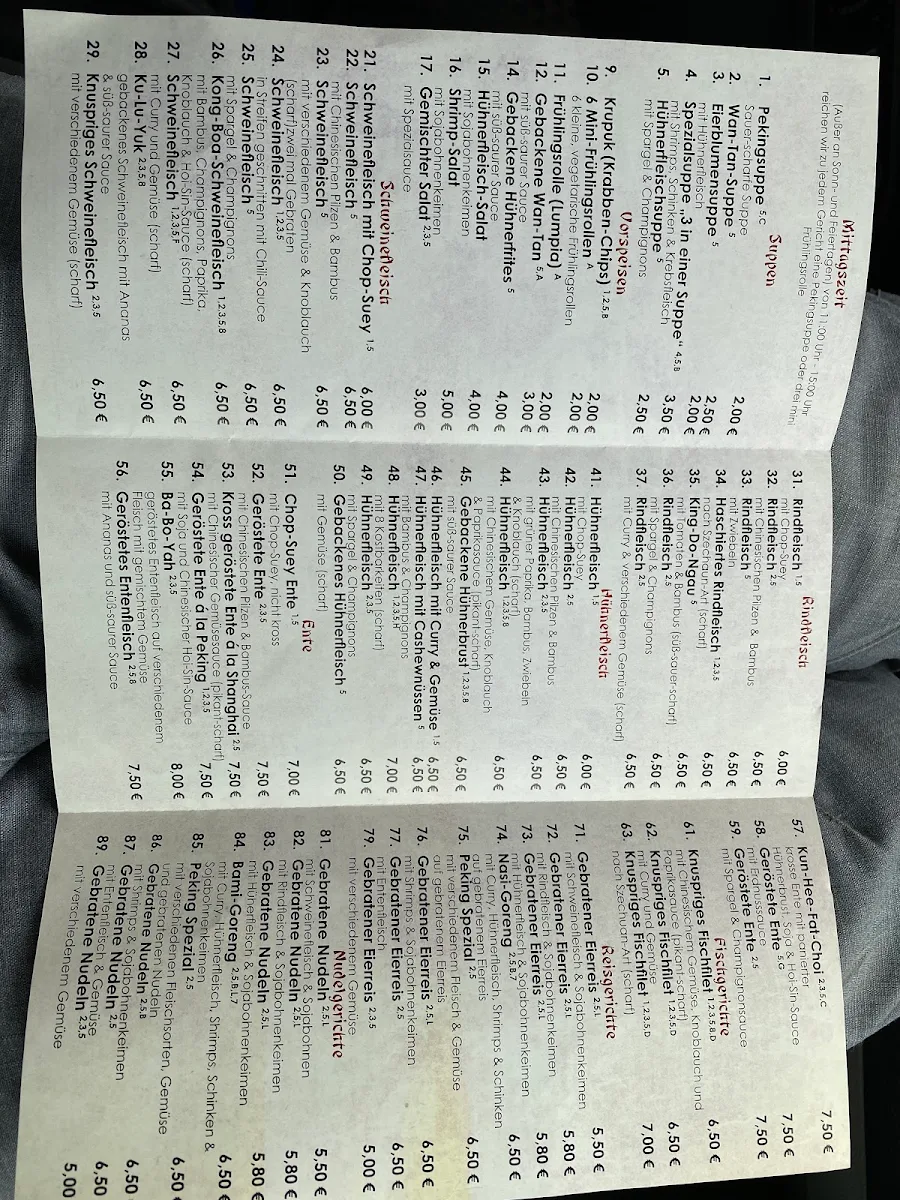 Mittagszeit
(Außer an Sonn- und Feiertagen) von 11:00 Uhr - 15:00 Uhr
reichen wir zu jedem Gericht eine Pekingsuppe oder drei mini
Frühlingsrolle
Suppen
1. Pekingsuppe 5,C 2,00 €
Sauer-scharfe Suppe
2. Wan-Tan-Suppe 5 2,50 €
3. Eierblumensuppe 5 2,00 €
mit Hühnerfleisch
4. Spezialsuppe „3 in einer Suppe“ 4,5,B 3,50 €
mit Shrimps, Schinken & Krebsfleisch
5. Hühnerfleischsuppe 5 2,50 €
mit Spargel & Champignons
Vorspeisen
9. Krupuk (Krabben-Chips) 1,2,5,8 2,00 €
10. 6 Mini-Frühlingsrollen A 2,00 €
6 kleine, vegetarische Frühlingsrollen
11. Frühlingsrolle (Lumpia) A 2,00 €
12. Gebackene Wan-Tan 5,A 3,00 €
mit süß-saurer Sauce
14. Gebackene Hühnerfrites 5 4,00 €
mit süß-saurer Sauce
15. Hühnerfleisch-Salat 4,00 €
mit Sojabohnenkeimen
16. Shrimp-Salat 5,00 €
mit Sojabohnenkeimen
17. Gemischter Salat 2,3,5 3,00 €
mit Spezialsauce
Schweinefleisch
21. Schweinefleisch mit Chop-Suey 1,5 6,00 €
22. Schweinefleisch 5 6,50 €
mit Chinesischen Pilzen & Bambus
23. Schweinefleisch 5 6,50 €
mit verschiedenem Gemüse & Knoblauch
(scharf)zwei mal Gebraten
24. Schweinefleisch 1,2,3,5 6,50 €
in Streifen geschnitten mit Chili-Sauce
25. Schweinefleisch 5 6,50 €
mit Spargel & Champignons
26. Kong-Boa-Schweinefleisch 1,2,3,5,8 6,50 €
mit Bambus, Champignons, Paprika,
Knoblauch & Hoi-Sin-Sauce (scharf)
27. Schweinefleisch 1,2,3,5,F 6,50 €
mit Curry und Gemüse (scharf)
28. Ku-Lu-Yuk 2,3,5,8 6,50 €
gebackenes Schweinefleisch mit Ananas
& süß-saurer Sauce
29. Knuspriges Schweinefleisch 2,3,5 6,50 €
mit verschiedenem Gemüse (scharf)
Rindfleisch
31. Rindfleisch 1,5 6,00 €
mit Chop-Suey
32. Rindfleisch 2,5 6,50 €
mit Chinesischen Pilzen & Bambus
33. Rindfleisch 5 6,50 €
mit Zwiebeln
34. Haschiertes Rindfleisch 1,2,3,5 6,50 €
nach Szechaun-Art (scharf)
35. King-Do-Ngau 5 6,50 €
mit Tomaten & Bambus (süß-sauer-scharf)
36. Rindfleisch 2,5 6,50 €
mit Spargel & Champignons
37. Rindfleisch 2,5 6,50 €
mit Curry & verschiedenem Gemüse (scharf)
Hühnerfleisch
41. Hühnerfleisch 1,5 6,00 €
mit Chop-Suey
42. Hühnerfleisch 2,5 6,50 €
mit Chinesischen Pilzen & Bambus
43. Hühnerfleisch 6,50 €
mit grüner Paprika, Bambus, Zwiebeln
& Knoblauch (scharf)
44. Hühnerfleisch 1,2,3,5,8 6,50 €
mit Chinesischem Gemüse, Knoblauch
& Paprikasauce (pikant-scharf)
45. Gebackene Hühnerbrust 1,2,3,5,8 6,50 €
mit süß-saurer Sauce
46. Hühnerfleisch mit Curry & Gemüse 1,5 6,50 €
47. Hühnerfleisch mit Cashewnüssen 5 6,50 €
mit Bambus & Champignons
48. Hühnerfleisch 1,2,3,5 7,00 €
mit 8 Kostbarkeiten (scharf)
49. Hühnerfleisch 2,3,5 6,50 €
mit Spargel & Champignons
50. Gebackenes Hühnerfleisch 5 6,50 €
mit Gemüse (scharf)
Ente
51. Chop-Suey Ente 1,5 7,00 €
mit Chop-Suey, nicht kross
52. Geröstete Ente 2,3,5 7,50 €
mit Chinesischen Pilzen & Bambus-Sauce
53. Kross geröstete Ente á la Shanghai 2,5 7,50 €
mit Chinesischer Gemüsesauce (pikant-scharf)
54. Geröstete Ente á la Peking 1,2,3,5 7,50 €
mit Soja und Chinesischer Hoi-Sin-Sauce
55. Ba-Bo-Yah 2,3,5 8,00 €
geröstetes Entenfleisch auf verschiedenem
Fleisch mit gemischtem Gemüse
56. Geröstetes Entenfleisch 2,5,8 7,50 €
mit Ananas und süß-saurer Sauce
57. Kum-Hee-Fat-Choi 2,3,5,C 7,50 €
krosse Ente mit panierter
Hühnerbrust, Soja & Hoi-Sin-Sauce
58. Geröstete Ente 5,G 7,50 €
mit Erdnusssauce
59. Geröstete Ente 2,5 7,50 €
mit Spargel & Champignonsauce
Fischgerichte
61. Knuspriges Fischfilet 1,2,3,5,8,D 6,50 €
mit Chinesischem Gemüse, Knoblauch und
Paprikasauce (pikant-scharf)
62. Knuspriges Fischfilet 1,2,3,5,D 6,50 €
mit Curry und Gemüse
63. Knuspriges Fischfilet 1,2,3,5,D 7,00 €
nach Szechuan-Art (scharf)
Reisgerichte
71. Gebratener Eierreis 2,5,L 5,50 €
mit Schweinefleisch & Sojabohnenkeimen
72. Gebratener Eierreis 2,5,L 5,80 €
mit Rindfleisch & Sojabohnenkeimen
73. Gebratener Eierreis 2,5,L 5,80 €
mit Hühnerfleisch & Sojabohnenkeimen
74. Nasi-Goreng 2,5,B,7 6,50 €
mit Curry, Hühnerfleisch, Shrimps & Schinken
auf Gebratenem Eierreis
75. Peking Spezial 2,5 6,50 €
mit verschiedenem Fleisch & Gemüse
auf gebratenem Eierreis
76. Gebratener Eierreis 2,5,L 6,50 €
mit Shrimps & Sojabohnenkeimen
77. Gebratener Eierreis 2,5 6,50 €
mit Entenfleisch
79. Gebratener Eierreis 2,3,5 5,00 €
mit verschiedenem Gemüse
Nudelgerichte
81. Gebratene Nudeln 2,5,L 5,50 €
mit Schweinefleisch & Sojabohnen
82. Gebratene Nudeln 2,5,L 5,80 €
mit Rindfleisch & Sojabohnenkeimen
83. Gebratene Nudeln 2,5,L 5,80 €
mit Hühnerfleisch & Sojabohnenkeimen
84. Bami-Goreng 2,5,B,L,7 6,50 €
mit Curry-Hühnerfleisch, Shrimps, Schinken &
Sojabohnenkeimen
85. Peking Spezial 2,5 6,50 €
mit verschiedenen Fleischsorten, Gemüse
und gebratenen Nudeln
86. Gebratene Nudeln 2,5,B 6,50
mit Shrimps & Sojabohnenkeimen
87. Gebratene Nudeln 2,5 6,50
mit Entenfleisch & Gemüse
89. Gebratene Nudeln 2,3,5 5,00
mit verschiedenem Gemüse